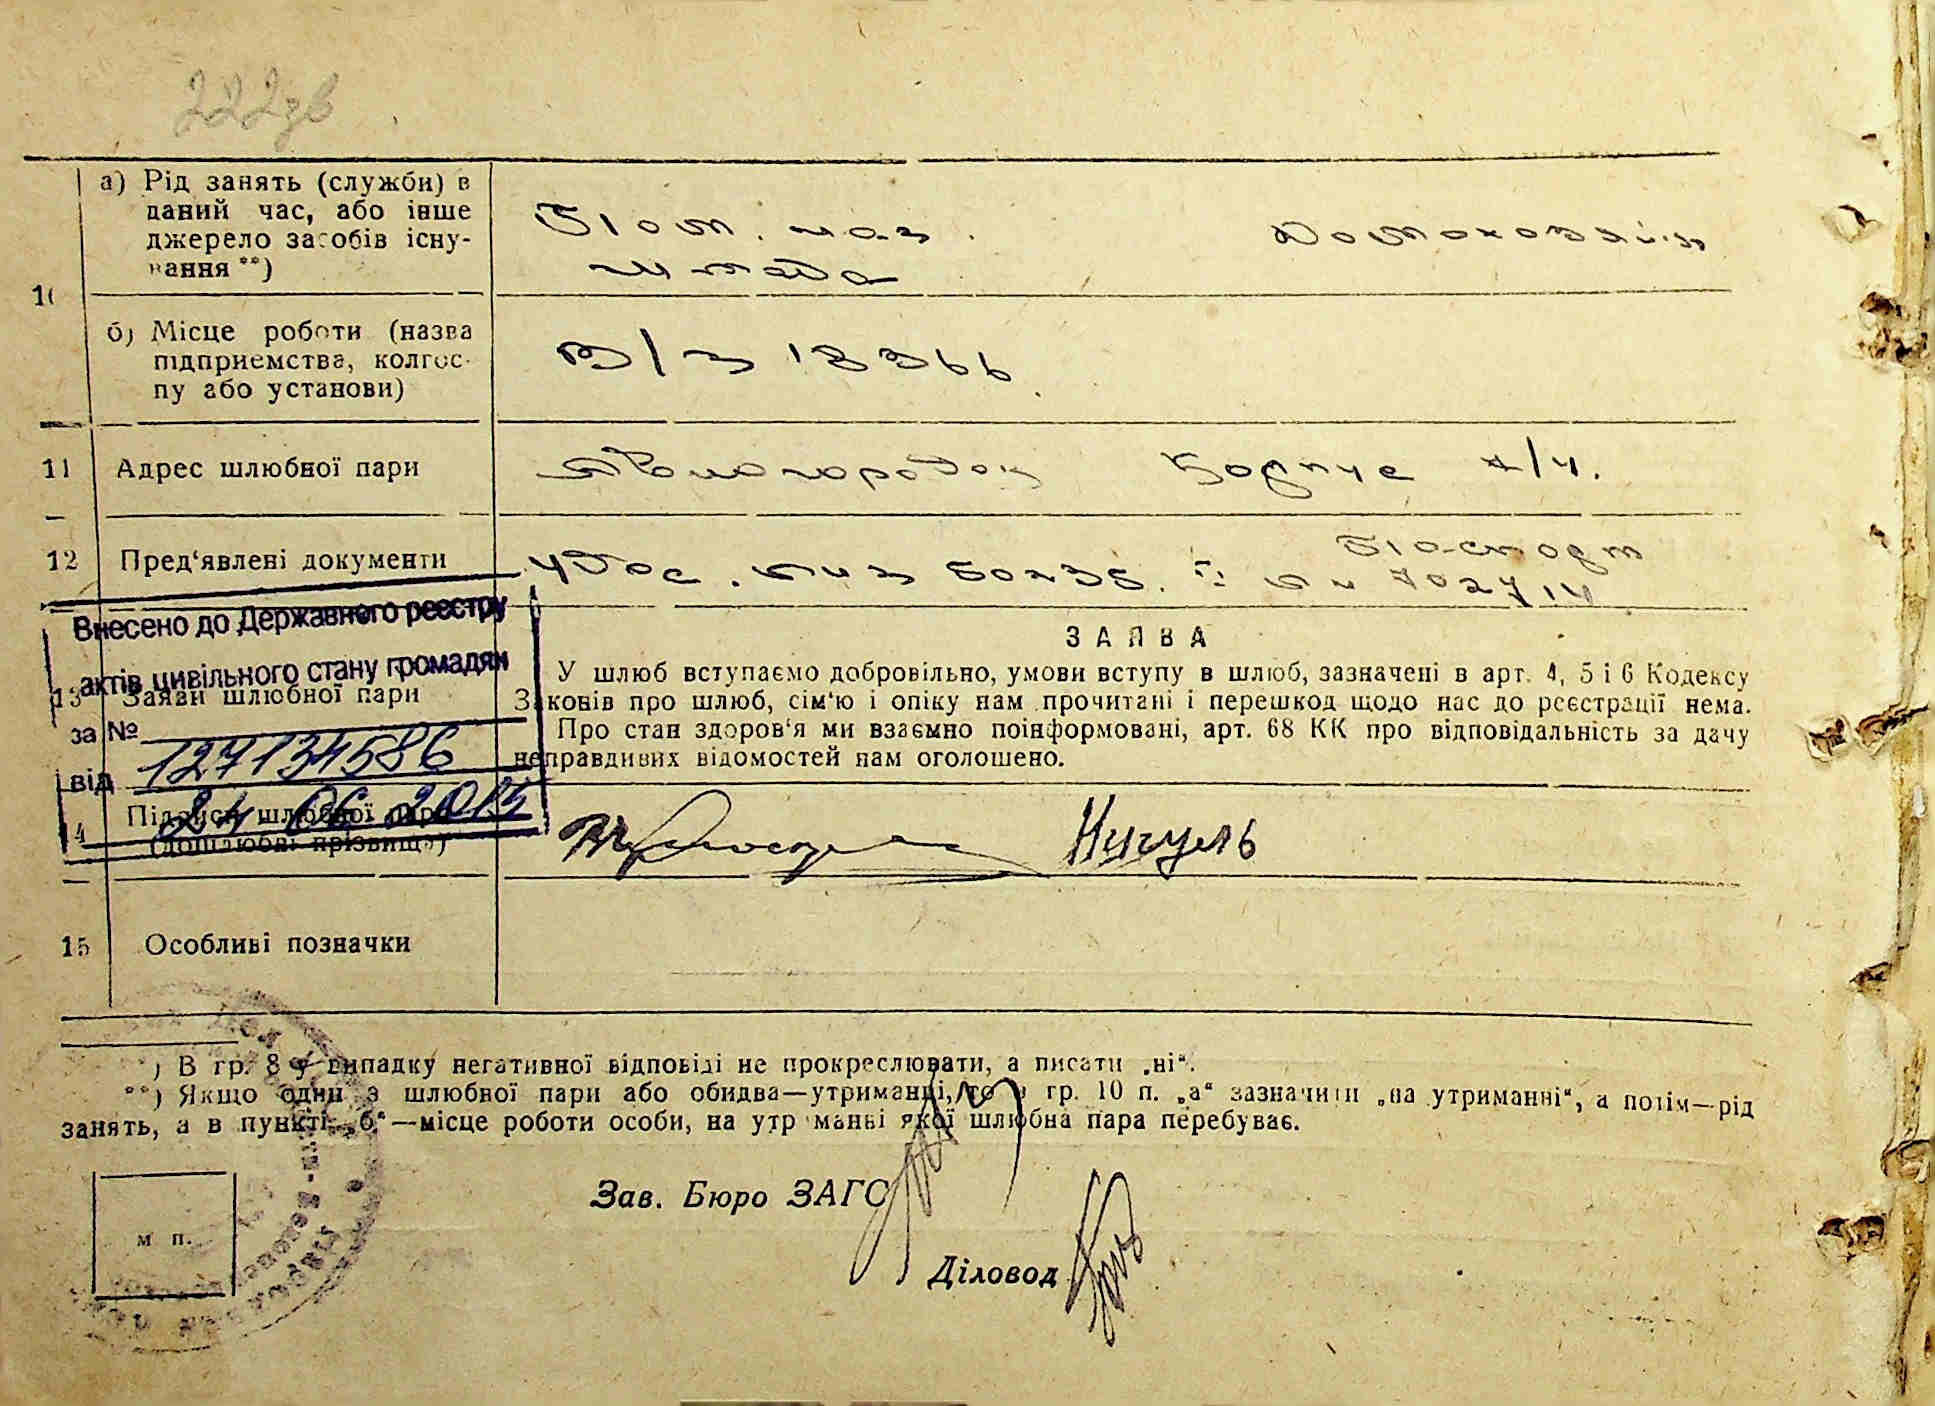 222зв
а) Рід занять (служби) в
даний час, або інше
джерело засобів існу-
вання **)
Пом. нач.
штаба
Домохозяйк
10
б) Місце роботи (назва
підприємства, колгос-
пу або установи)
В/ч 18366
11 Адрес шлюбної пари
Авиогородок Корпус 4/4.
12 Пред'явлені документи
Удос.
Паспорт
Внесено до Державного реєстру
актів цивільного стану громадян
за № 127134586
від 24 06 2015
13 Заяви шлюбної пари
ЗАЯВА
У шлюб вступаємо добровільно, умови вступу в шлюб, зазначені в арт. 4, 5 і 6 Кодексу
Законів про шлюб, сім'ю і опіку нам прочитані і перешкод щодо нас до реєстрації нема.
Про стан здоров'я ми взаємно поінформовані, арт. 68 КК про відповідальність за дачу
неправдивих відомостей нам оголошено.
14 Підписи шлюбної пари
(дошлюбні прізвища)
Нигуль
15 Особливі позначки
*) В гр. 8 у випадку негативної відповіді не прокреслювати, а писати „ні“.
**) Якщо один з шлюбної пари або обидва—утриманці, то в гр. 10 п. „а“ зазначити „на утриманні“, а потім—рід
занять, а в пункті „б“—місце роботи особи, на утриманні якої шлюбна пара перебуває.
Зав. Бюро ЗАГС
м п.
Діловод